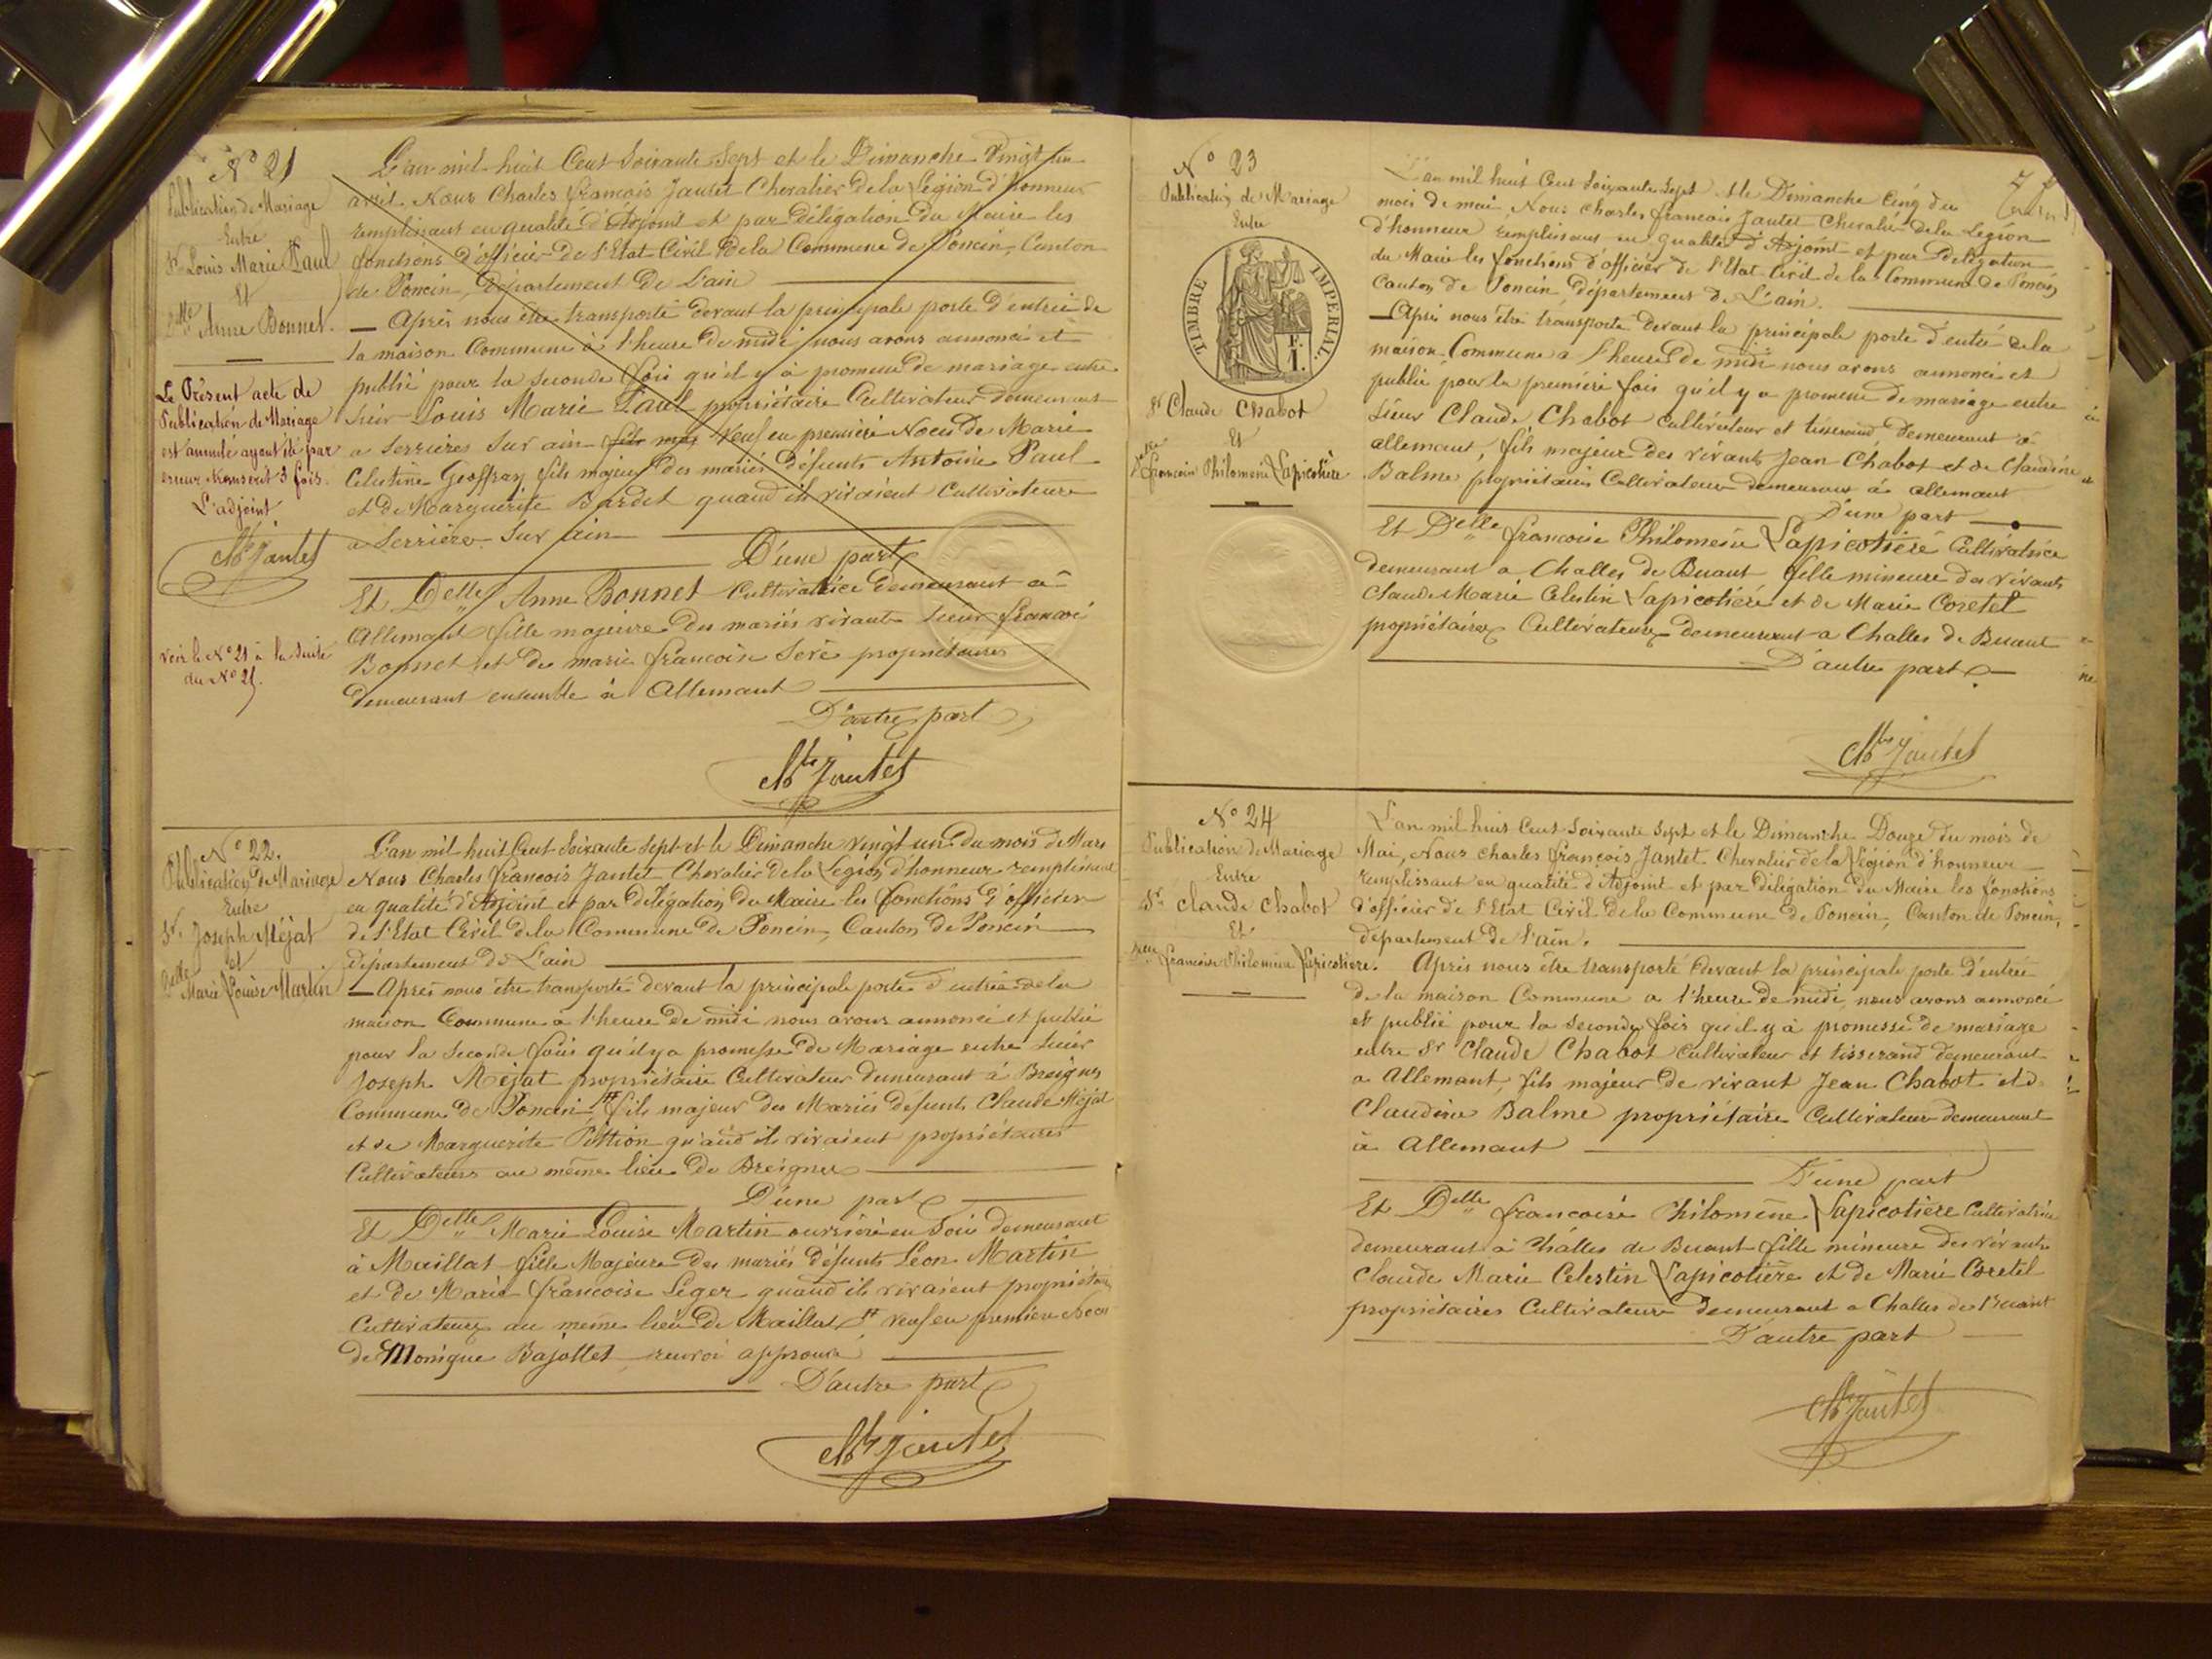 N° 21
Publication de Mariage
Entre
Sr Louis Marie Paul
Et
Delle Anne Bonnet.
Le Présent acte de
Publication de Mariage
est annulé ayant été par
erreur transcrit 3 fois.
L'adjoint
Ch. Jantet
Voir le N° 21 à la suite
du N° 25.
L'an mil huit Cent Soixante Sept et le Dimanche Vingt un
avril Nous Charles François Jantet Chevalier de la Légion d'honneur
remplissant en qualité d'Adjoint et par Délégation du Maire les
fonctions d'officier de l'Etat Civil de la Commune de Poncin, Canton
de Poncin, Département de L'ain
Après nous être transporté devant la principale porte d'entrée de
la maison Commune à l'heure de midi nous avons annoncé et
publié pour la seconde fois qu'il y a promesse de mariage entre
Sieur Louis Marie Paul propriétaire Cultivateur demeurant
a Serrières Sur ain fils maj Veuf en première Noces de Marie
Celestine Geoffray fils majeur des mariés défunts Antoine Paul
et de Marguerite Bardet quand ils vivaient Cultivateurs
a Serrières Sur ain
D'une part
Et Delle Anne Bonnet Cultivatrice demeurant à
Allemant fille majeure des mariés vivants Sieur françois
Bonnet et de marie francoise Seve propriétaires
demeurant ensemble à Allemant
D'autre part
Ch. Jantet
N° 22.
Publication de Mariage
Entre
Sr. Joseph Méjat
et
Delle Marie Louise Martin
L'an mil huit Cent Soixante Sept et le Dimanche vingt un du mois de Mars
Nous Charles francois Jantet Chevalier de la Légion d'honneur remplissant
en qualité d'Adjoint et par délégation du Maire les fonctions d'officier
de l'Etat Civil de la Commune de Poncin, Canton de Poncin
département de L'ain
Après nous être transporté devant la principale porte d'entrée de la
maison Commune à l'heure de midi nous avons annoncé et publié
pour la seconde fois qu'il y a promesse de Mariage entre Sieur
Joseph Méjat propriétaire Cultivateur demeurant à Breignes
Commune de Poncin fils majeur des Mariés défunts Claude Méjat
et de Marguerite Pittion quand ils vivaient propriétaires
Cultivateurs au même lieu de Breignes
D'une part
Et Delle Marie Louise Martin ouvrière en Soie demeurant
à Maillat fille Majeure des mariés défunts Léon Martin
et de Marie francoise Léger quand ils vivaient propriétaires
Cultivateurs au même lieu de Maillat veuf en première Noces
de Monique Bajollet renvoi approuvé
D'autre part
Ch. Jantet
N° 23
Publication de Mariage
Entre
TIMBRE IMPERIAL.
F.
I.
Sr Claude Chabot
Et
Delle francoise Philomene Lapicotière
L'an mil huit Cent Soixante Sept et le Dimanche Cinq du
mois de mai, Nous Charles francois Jantet Chevalier de la Legion
d'honneur remplissant en qualité d'Adjoint et par Delegation
du Maire les fonctions d'officier de l'Etat Civil de la Commune de Poncin
Canton de Poncin, département de L'ain.
Après nous être transporté devant la principale porte d'entrée de la
maison Commune a l'heure de midi nous avons annoncé et
publié pour la première fois qu'il y a promesse de mariage entre
Sieur Claude Chabot Cultivateur et tisserand demeurant à
allemant, fils majeur des vivants Jean Chabot et de Claudine
Balme propriétaires Cultivateurs demeurant à allemant
D'une part
Et Delle francoise Philomène Lapicotière Cultivatrice
demeurant a Challes de Buant fille mineure des vivants
Claude Marie Celestin Lapicotière et de Marie Coretel
propriétaires Cultivateurs demeurant a Challes de Buant
D'autre part
Ch. Jantet
N° 24
Publication de Mariage
Entre
Sr. Claude Chabot
Et
Delle francoise Philomène Lapicotière.
L'an mil huit Cent Soixante Sept et le Dimanche Douze du mois de
Mai, Nous Charles françois Jantet Chevalier de la Légion d'honneur
remplissant en qualité d'Adjoint et par délégation du Maire les fonctions
d'officier de l'Etat Civil de la Commune de Poncin, Canton de Poncin,
département de l'ain.
Après nous être transporté devant la principale porte d'entrée
de la maison Commune a l'heure de midi, nous avons annoncé
et publié pour la seconde fois qu'il y à promesse de mariage
entre Sr Claude Chabot Cultivateur et tisserand demeurant
a Allemant, fils majeur de vivant Jean Chabot et de
Claudine Balme propriétaire Cultivateur demeurant
à Allemant
D'une part
Et Delle francoise Philomène Lapicotière Cultivatrice
demeurant à Challes de Buant fille mineure des vivants
Claude Marie Celestin Lapicotière et de Marie Coretel
propriétaires Cultivateurs demeurant a Challes de Buant
D'autre part
Ch. Jantet